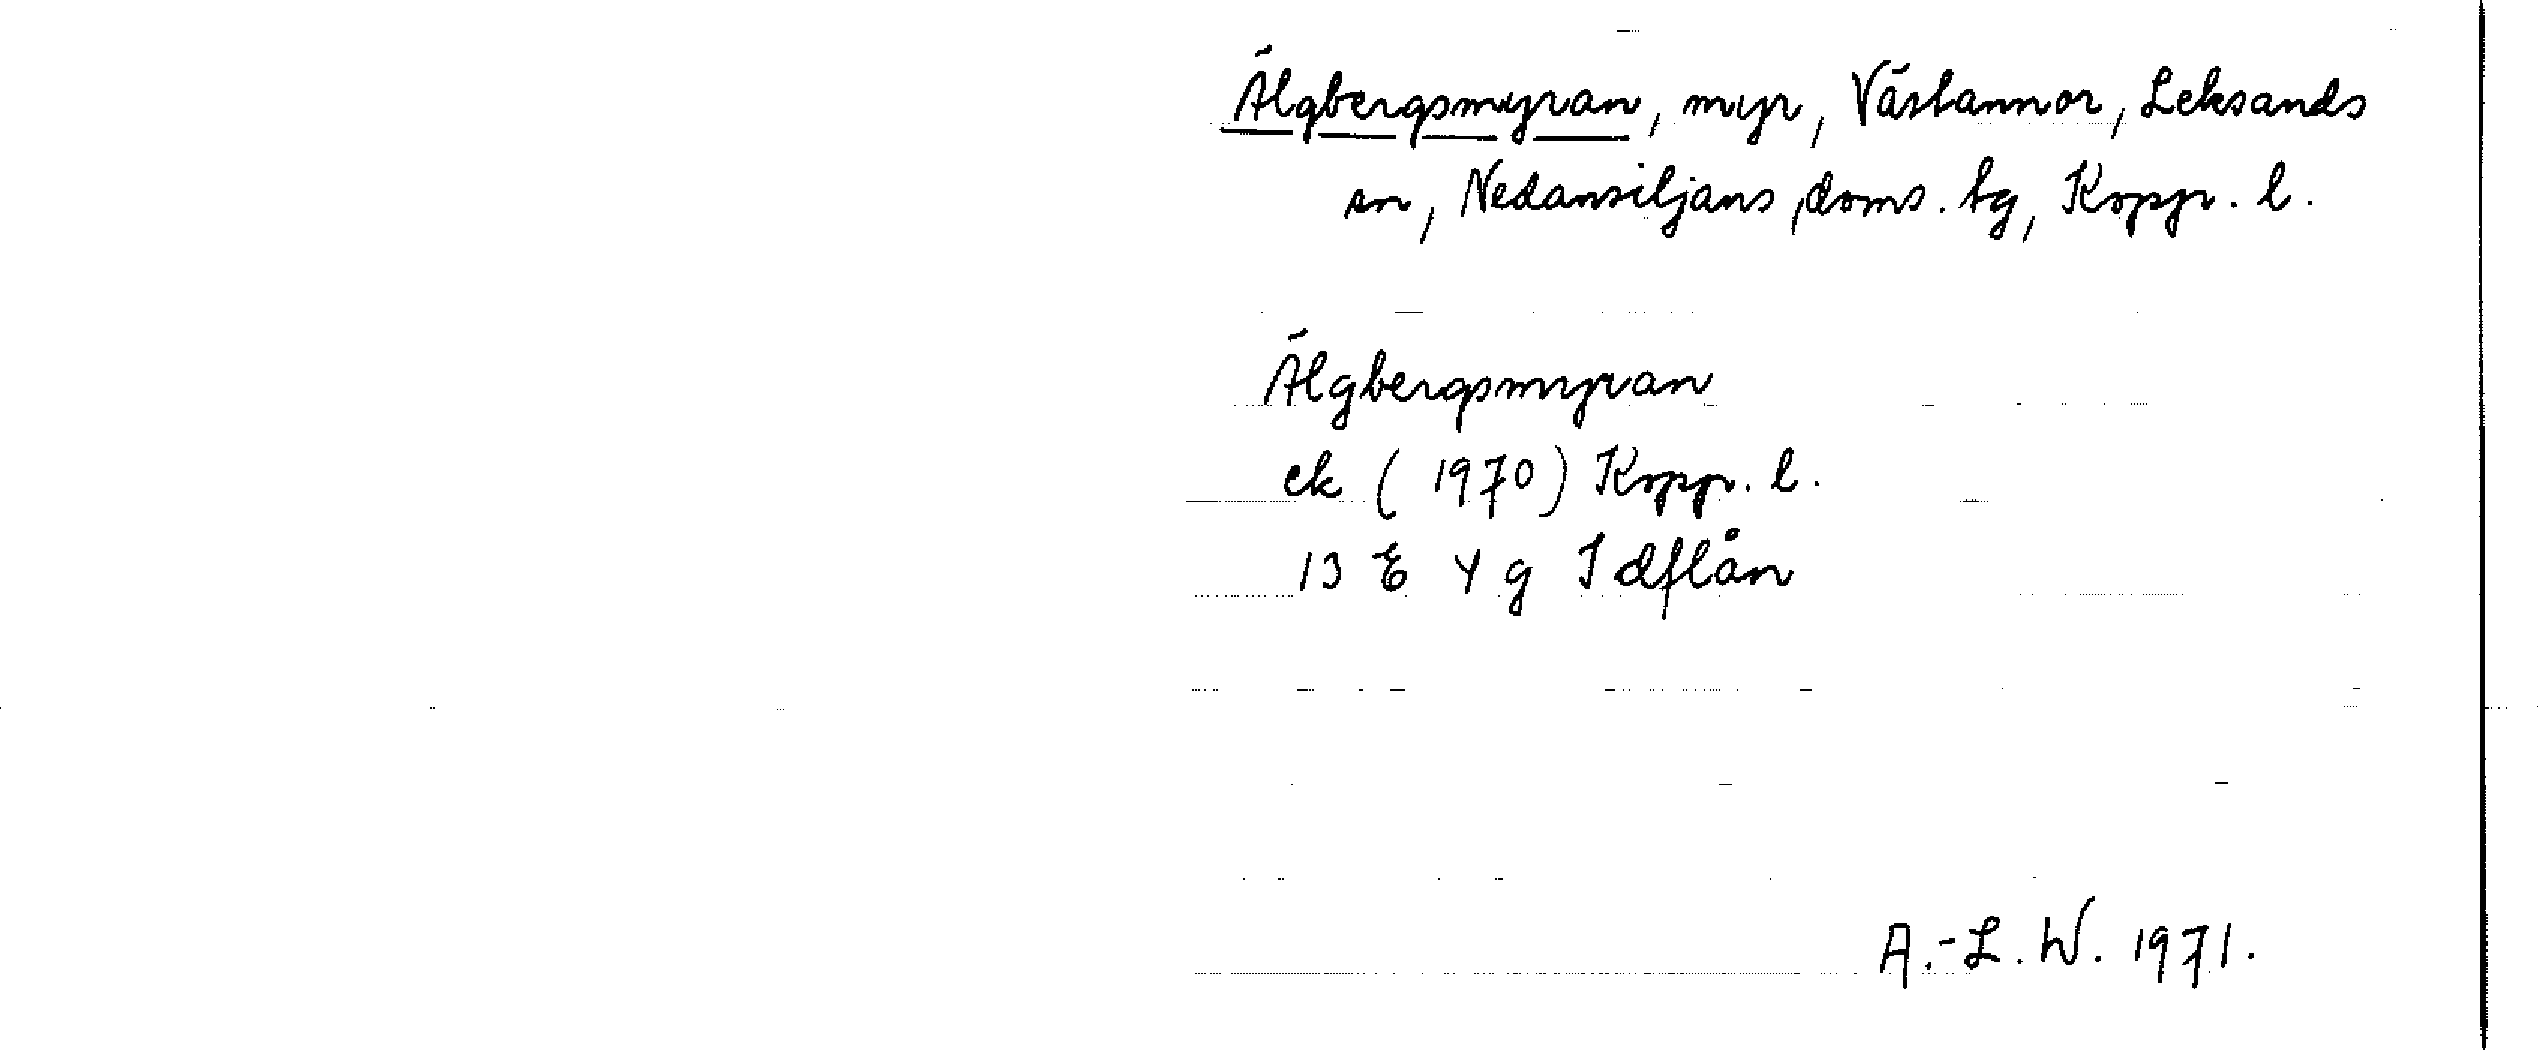 Älgbergsmyran, myr, Västannor, Leksands
sn, Nedansiljans doms. tg, Kopp. l.
Älgbergsmyran
ek (1970) Kopp. l.
13 E 4 g Idflån
A.-L. W. 1971.